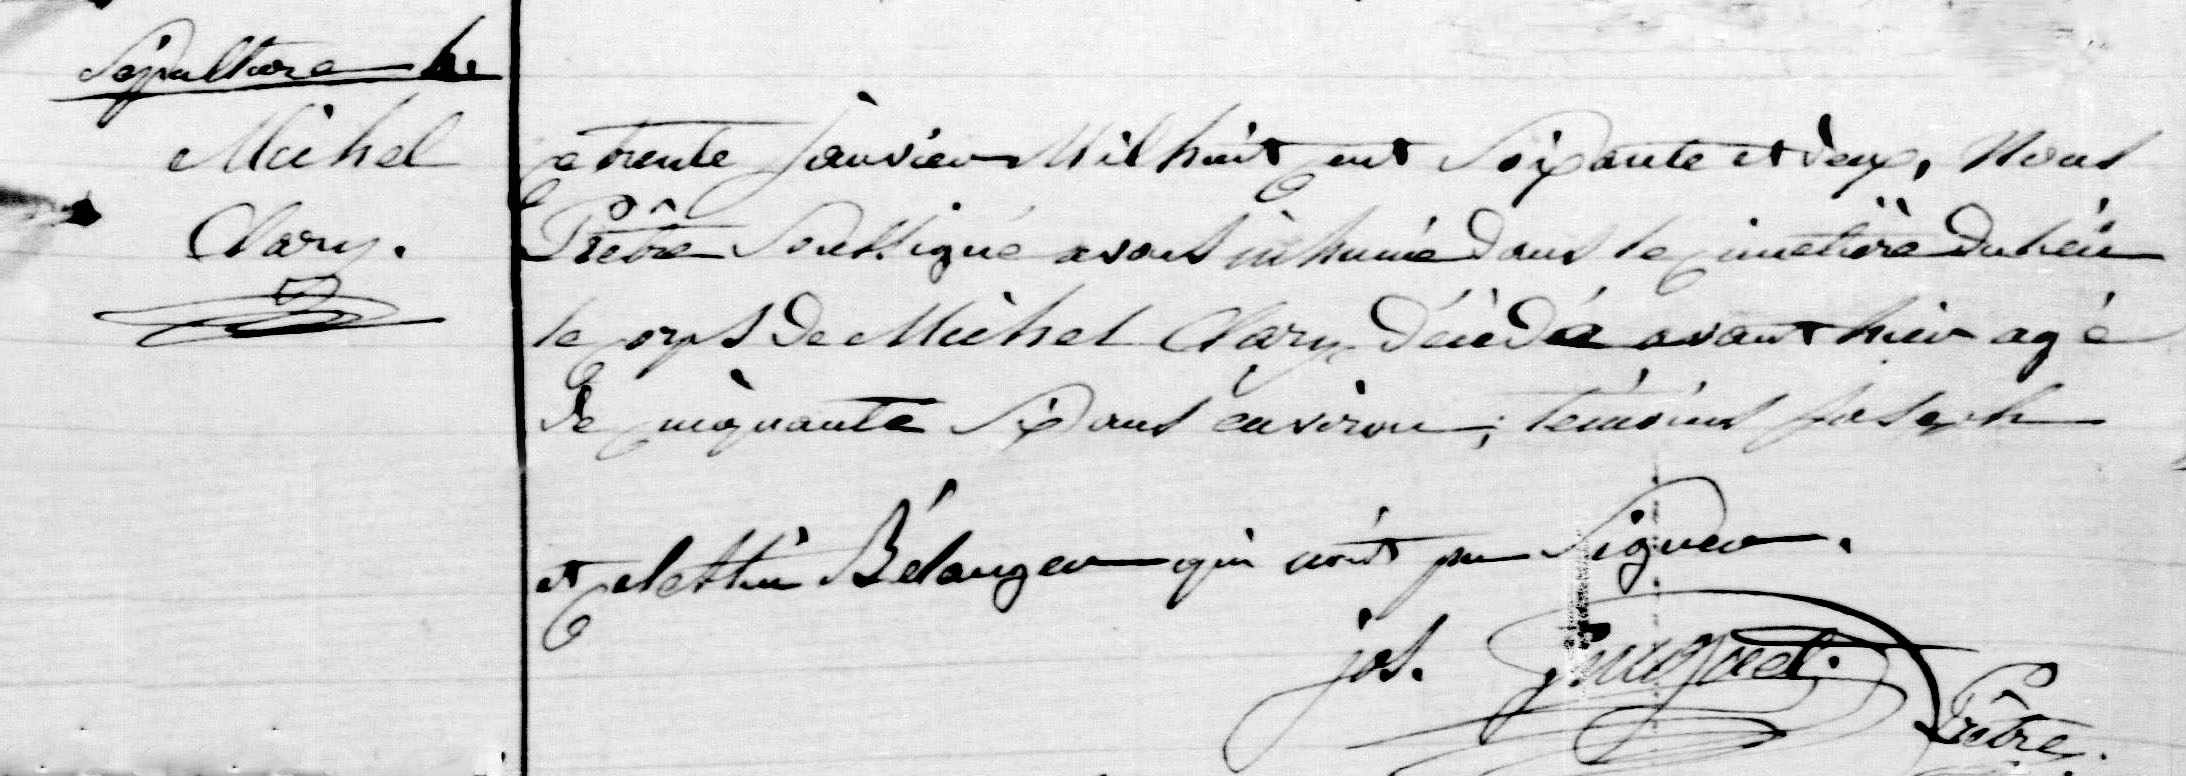 Sépulture de
Michel
Clary.
Ce trente Janvier Mil huit cent Soixante et deux, Nous
Prêtre Soussigné avons inhumé dans le cimetière du lieu
le corps de Michel Clary décédé avant hier agé
de cinquante Six ans environ; témoins Joseph
et Célestin Bélanger qui n'ont pu Signer.
jos.
Prêtre.